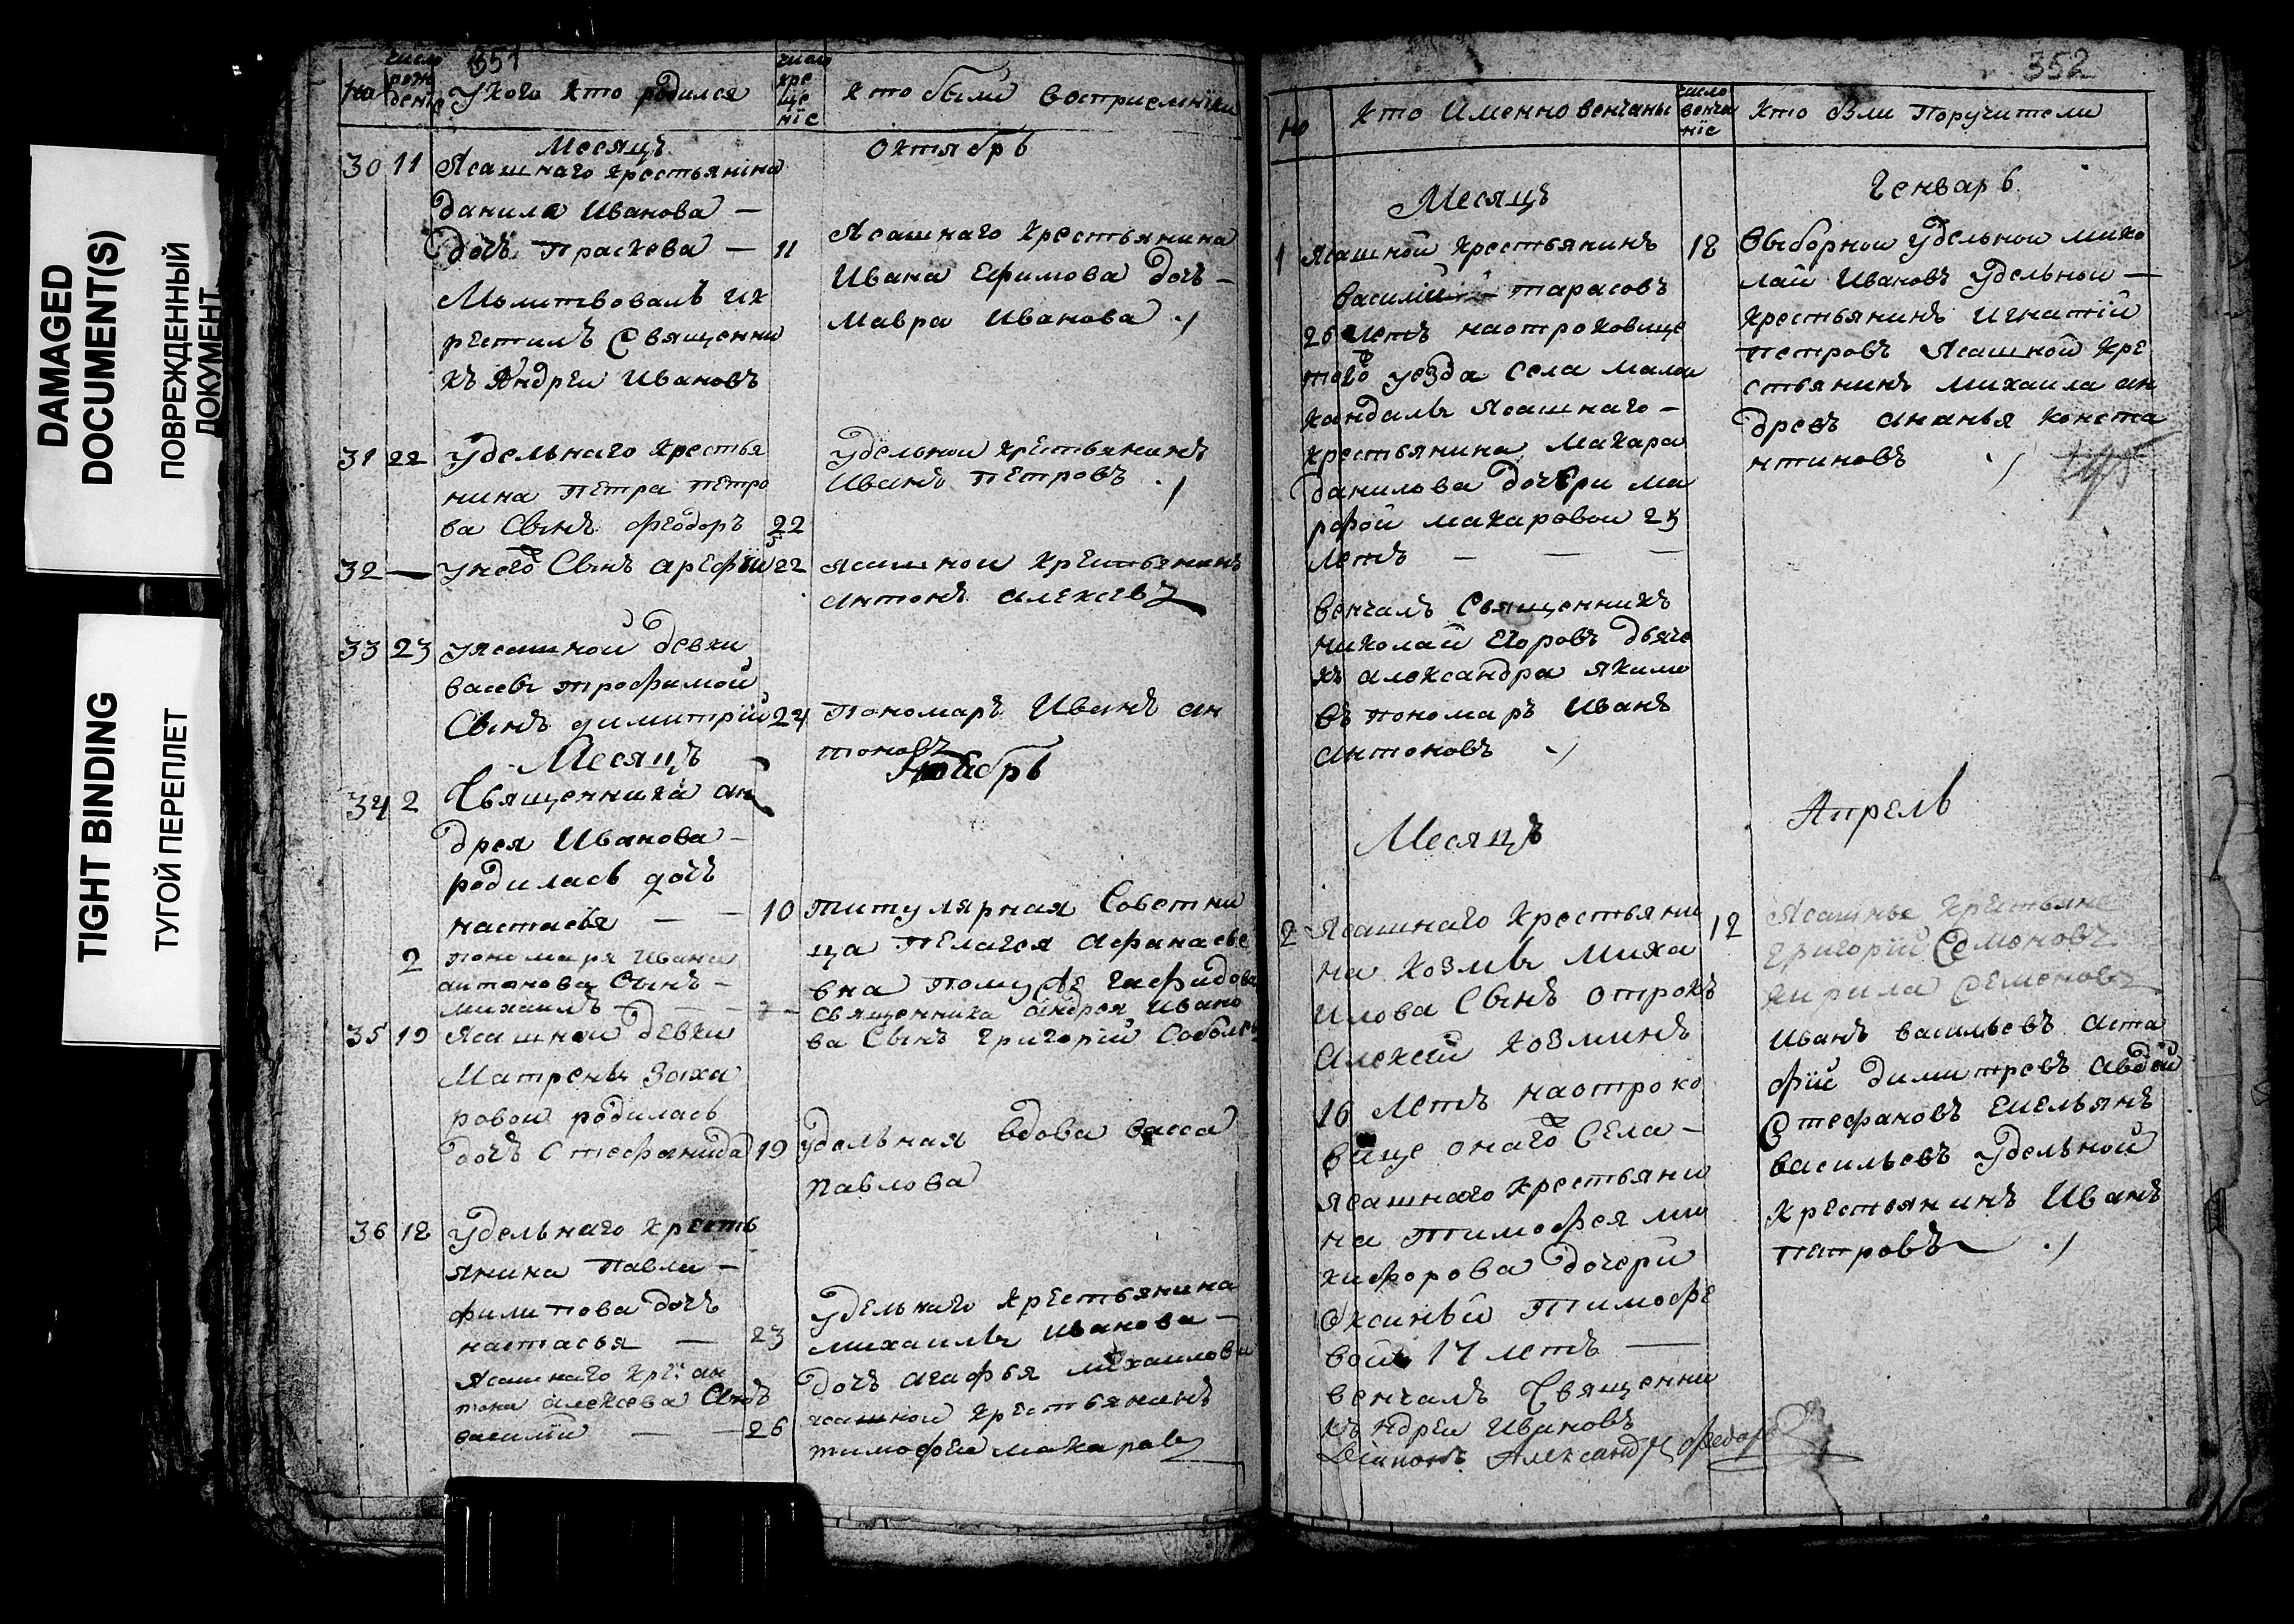 DAMAGED
DOCUMENT(S)
ПОВРЕЖДЕННЫЙ
ДОКУМЕНТ
TIGHT BINDING
ТУГОЙ ПЕРЕПЛЕТ
351
число рож дение
У кого кто родился
число кре ще ніе
Кто были восприемники
Месяцъ Октябрь
30 11 Ясашнаго крестьянина
данила Иванова —
дочь Праскева — 11
Молитвовалъ и к
рестилъ Священни
къ Андреи Ивановъ
Ясашнаго крестьянина
Ивана Ефимова дочь —
Мавра Иванова
31 22 Удельнаго крестья
нина Петра Петро
ва Сынъ Феодоръ 22
Удельнои крестьянинъ
Иванъ Петровъ
32 — у него Сынъ арефии 22
ясашнои крестьянинъ
Антонъ алексевъ
33 23 у ясашнои девки
васы трофимой
Сынъ димитрий 24
Пономаръ Иванъ ан
тоновъ
Месяцъ Ноябрь
34 2 Священника ан
дрея Иванова —
родилась дочь
настасья — — 10
Титулярная Советни
ца Пелагея Афанасье
вна
2 пономаря Ивана
антонова Сынъ —
михаилъ —
Священника Андрея Ивано
ва Сынъ Григорий
35 19 Ясашнои девки
Матрены Заха
ровои родилась
дочь Стефанида 19
Удельная вдова васса
Павлова
36 12 Удельнаго кресть
янина Павла —
филипова дочь
настасья — 23
Удельнаго крестьянина
михаилы Иванова —
дочь агафья михаилова
Ясашнаго кре: ан
тона алексева Сынъ
василии — — 26
ясашнои крестьянинъ
тимофеи макаровъ
352
Но Кто Именно венчаны
число венча ніе
Кто были Поручители
Месяцъ Генварь
1 Ясашной крестьянинъ 12
Василий тарасовъ
26 летъ на отроковице
того уезда Села малои
кандалы Ясашнаго —
крестьянина Макара
данилова дочери ма
рфой макаровои 25
летъ — — —
венчалъ Священникъ
николай Егоровъ дьяче
къ александра якимо
въ пономаръ Иванъ
антоновъ
Выборнои удельнои нико
лаи Ивановъ удельнои —
крестьянинъ Игнатий
Петровъ Ясашной кре
стьянинъ михаила ан
древъ ананья конста
нтиновъ
Месяцъ Апрель
2 Ясашнаго крестьяни 12
на козмы Миха
илова Сынъ отрокъ
Алексей козминъ
16 летъ на отроко
вице онаго Села —
Ясашнаго крестьяни
на Тимофея ни
кифорова дочери
Оксиньи Тимофе
вои 17 летъ —
венчалъ Священни
къ ндреи Ивановъ
Александръ Федоровъ
Ясашные крестьяне
Григорий Семоновъ
кирила Семеновъ
Иванъ васильевъ аста
фий димитревъ авдей
Стефановъ Емельянъ
васильевъ удельной
крестьянинъ Иванъ
петровъ